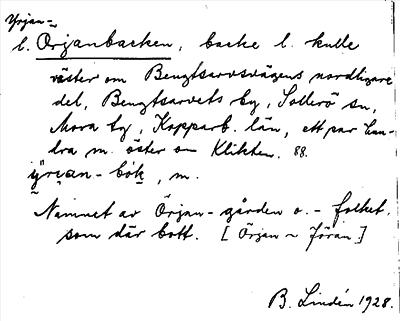 Yrjan-
l. Örjanbacken, backe l. kulle
väster om Bengtsarvsvägens nordligare
del, Bengtsarvets by, Sollerö sn,
Mora tg, Kopparb. län, ett par hun-
dra m. öster om Klikten. 88.
ÿrjan-bök, m.
Namnet av Örjan-gården o. -folket,
som där bott. [Örjan ~ Jöran]
B. Lindén 1928.